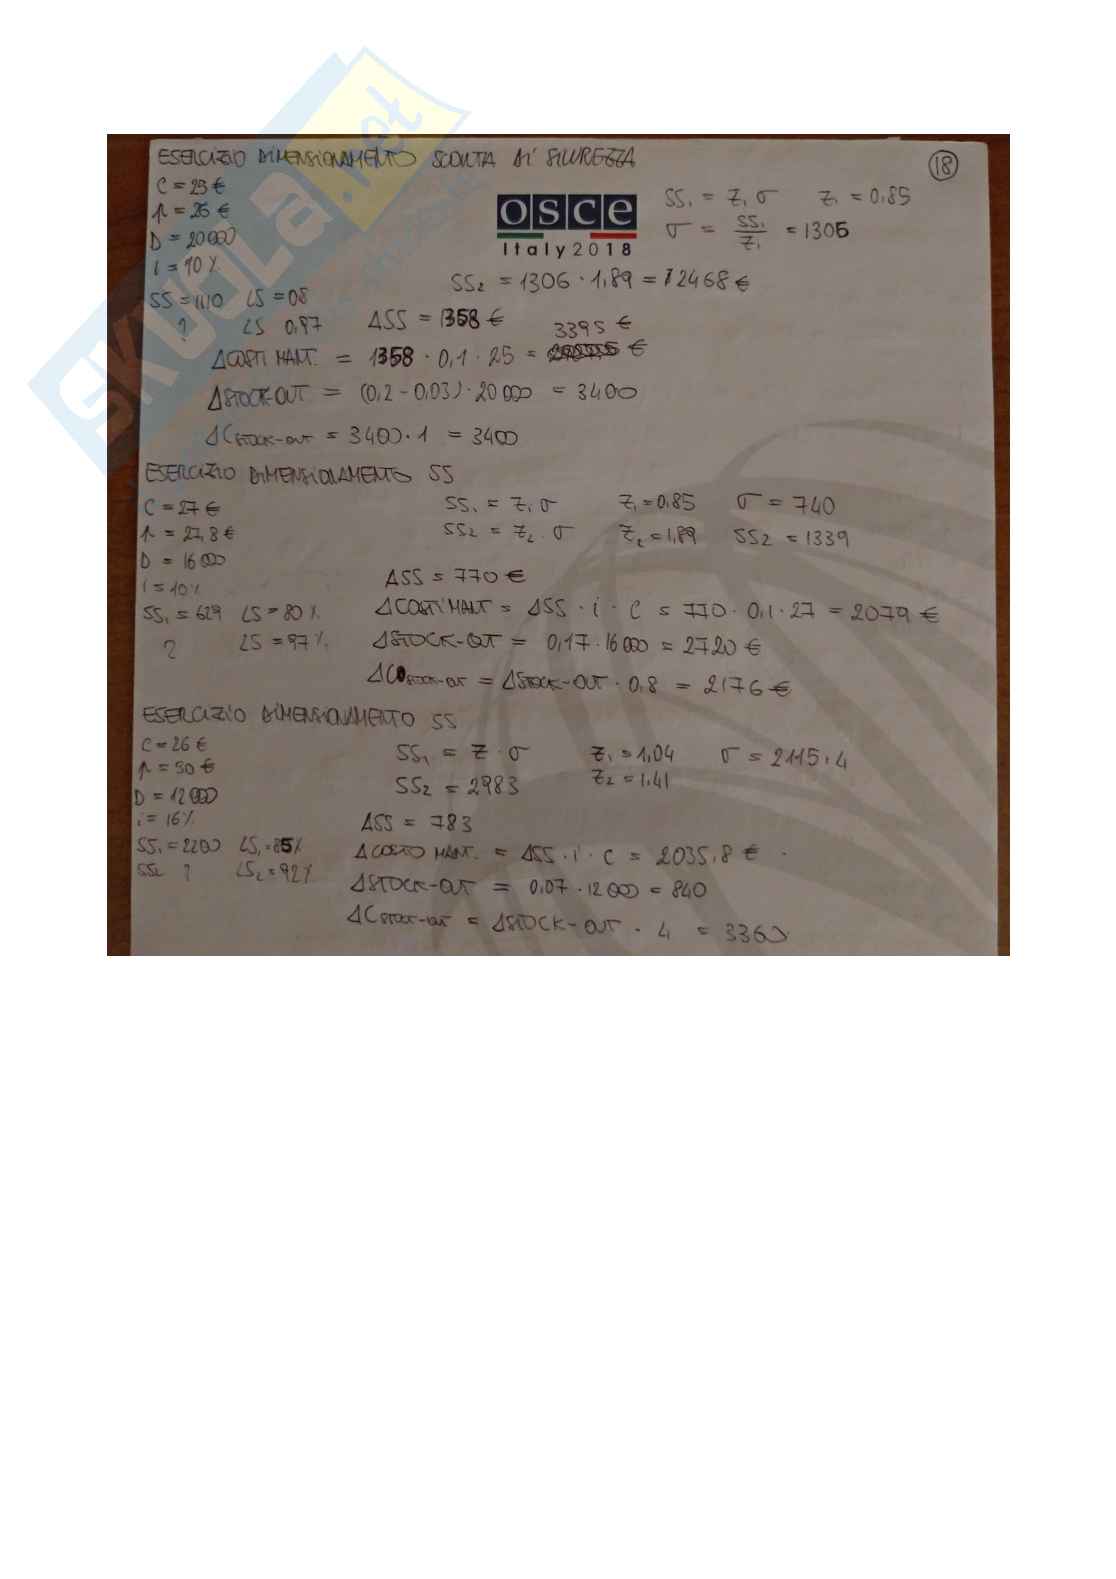 ESERCIZIO DIMENSIONAMENTO SCORTA DI SICUREZZA
18
C = 25 €
p = 26 €
D = 20000
i = 10%
SS = 1110 LS = 08
? LS 0,97
osce
Italy2018
SS₁ = Z₁ σ Z₁ = 0,85
σ = SS₁/Z₁ = 1305
SS₂ = 1306 · 1,89 = 2468 €
ΔSS = 1358 €
3395 €
ΔCOSTI MANT. = 1358 · 0,1 · 25 = €
ΔSTOCK-OUT = (0,2 - 0,03) · 20000 = 3400
ΔC STOCK-OUT = 3400 · 1 = 3400
ESERCIZIO DIMENSIONAMENTO SS
C = 27 €
p = 27,8 €
D = 16000
i = 10%
SS₁ = 629 LS = 80%
? LS = 97%
SS₁ = Z₁ σ Z₁ = 0,85 σ = 740
SS₂ = Z₂ · σ Z₂ = 1,89 SS2 = 1339
ΔSS = 770 €
ΔCOSTI MANT = ΔSS · i · C = 770 · 0,1 · 27 = 2079 €
ΔSTOCK-OUT = 0,17 · 16000 = 2720 €
ΔC STOCK-OUT = ΔSTOCK-OUT · 0,8 = 2176 €
ESERCIZIO DIMENSIONAMENTO SS
C = 26 €
p = 30 €
D = 12000
i = 16%
SS₁ = 2200 LS₁ = 85%
SS₂ ? LS₂ = 92%
SS₁ = Z · σ Z₁ = 1,04 σ = 2115,4
SS₂ = 2983 Z₂ = 1,41
ΔSS = 783
ΔCOSTO MANT. = ΔSS · i · C = 2035,8 €
ΔSTOCK-OUT = 0,07 · 12000 = 840
ΔC STOCK-OUT = ΔSTOCK-OUT · 4 = 3360